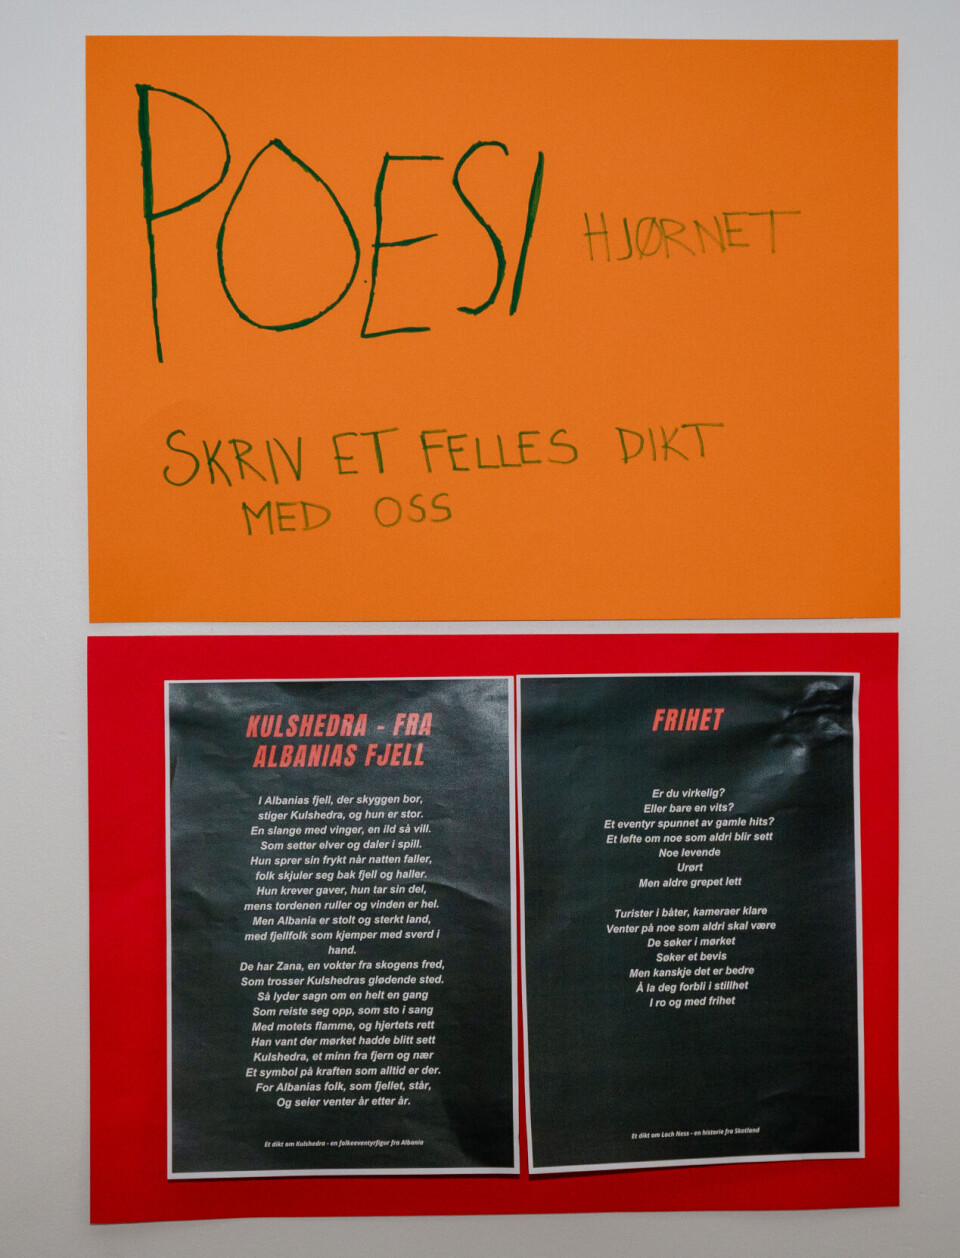 POESI HJØRNET
SKRIV ET FELLES DIKT
MED OSS
KULSHEDRA - FRA
ALBANIAS FJELL
I Albanias fjell, der skyggen bor,
stiger Kulshedra, og hun er stor.
En slange med vinger, en ild så vill.
Som setter elver og daler i spill.
Hun sprer sin frykt når natten faller,
folk skjuler seg bak fjell og haller.
Hun krever gaver, hun tar sin del,
mens tordenen ruller og vinden er hel.
Men Albania er stolt og sterkt land,
med fjellfolk som kjemper med sverd i
hand.
De har Zana, en vokter fra skogens fred,
Som trosser Kulshedras glødende sted.
Så lyder sagn om en helt en gang
Som reiste seg opp, som sto i sang
Med motets flamme, og hjertets rett
Han vant der mørket hadde blitt sett
Kulshedra, et minn fra fjern og nær
Et symbol på kraften som alltid er der.
For Albanias folk, som fjellet, står,
Og seier venter år etter år.
Et dikt om Kulshedra - en folkeeventyrfigur fra Albania
FRIHET
Er du virkelig?
Eller bare en vits?
Et eventyr spunnet av gamle hits?
Et løfte om noe som aldri blir sett
Noe levende
Urørt
Men aldre grepet lett
Turister i båter, kameraer klare
Venter på noe som aldri skal være
De søker i mørket
Søker et bevis
Men kanskje det er bedre
Å la deg forbli i stillhet
I ro og med frihet
Et dikt om Loch Ness - en historie fra Skotland